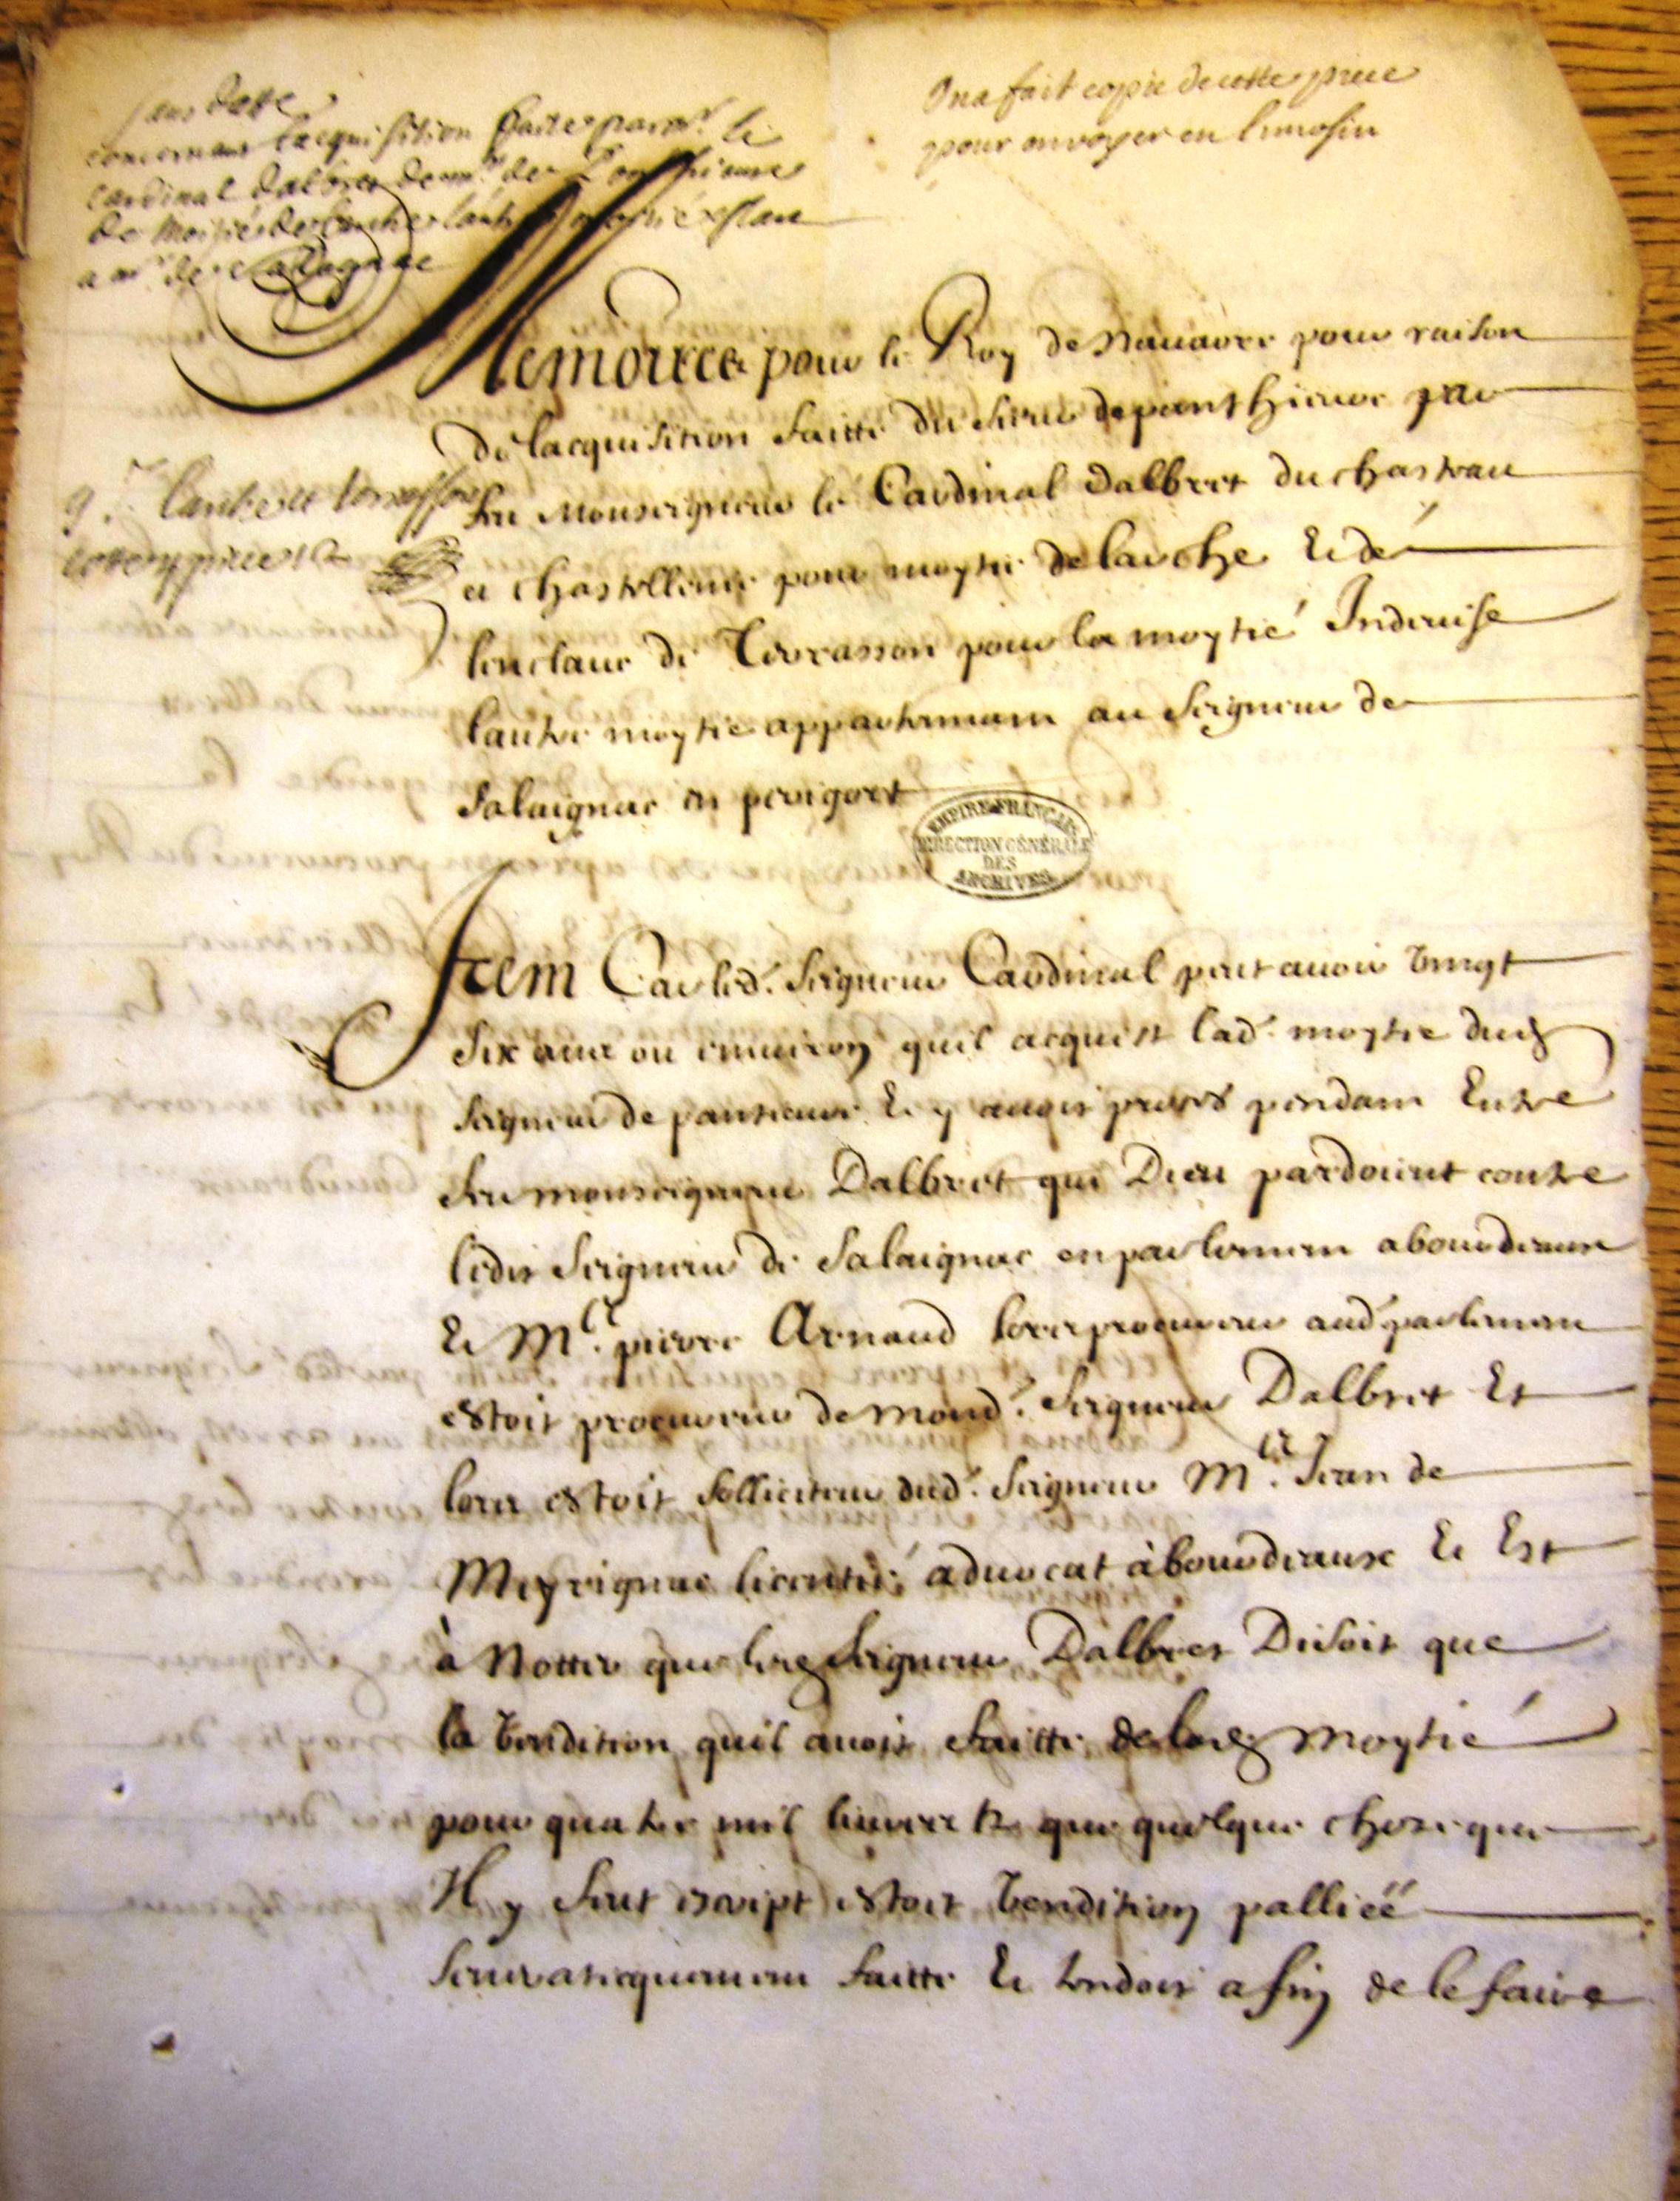 sans datte
concernant lacquisition faite par mr. le
cardinal dalbret de mr. de Ponthieure
de moitié de larche lautre moitié estant
a mr. de Salagnac
On a fait copie de cette piece
pour envoyer en limosin
Memoires pour le Roy de Nauarre pour raison
de lacquisition faitte du sieur de pointhieure par
feu Monseigneur le Cardinal dalbret du chasteau
et chastellenie pour moytie de larche Et de
lenclaue de Terrasson pour la moytié Indiuise
lautre moytie appartenant au seigneur de
salaignac en perigort
9.
cotte piece
EMPIRE FRANÇAIS
DIRECTION GÉNÉRALE
DES
ARCHIVES
Item Car led. seigneur Cardinal peut auoir vingt
six ans ou enuiron quil acquist lad. moytie dud
seigneur de pantieure Et y auoit proces pendant Entre
feu monseigneur Dalbret qui Dieu pardoint contre
ledit seigneur de salaignac en parlement a bourdeaux
Et Me. pierre Arnaud lors procureur aud parlement
estoit procureur de mond. seigneur Dalbret Et
lors estoit solliciteur dud. seigneur Me. Jean de
Meyrignac licentié aduocat à bourdeaux Et Est
à Notter que led seigneur Dalbret Disoit que
la vendition quil auoit faitte de lad moytié
pour quatre mil liures et que quelque chose que
Il y feut escript estoit vendition palliéé
faitte Et tendoit a fin de le faire